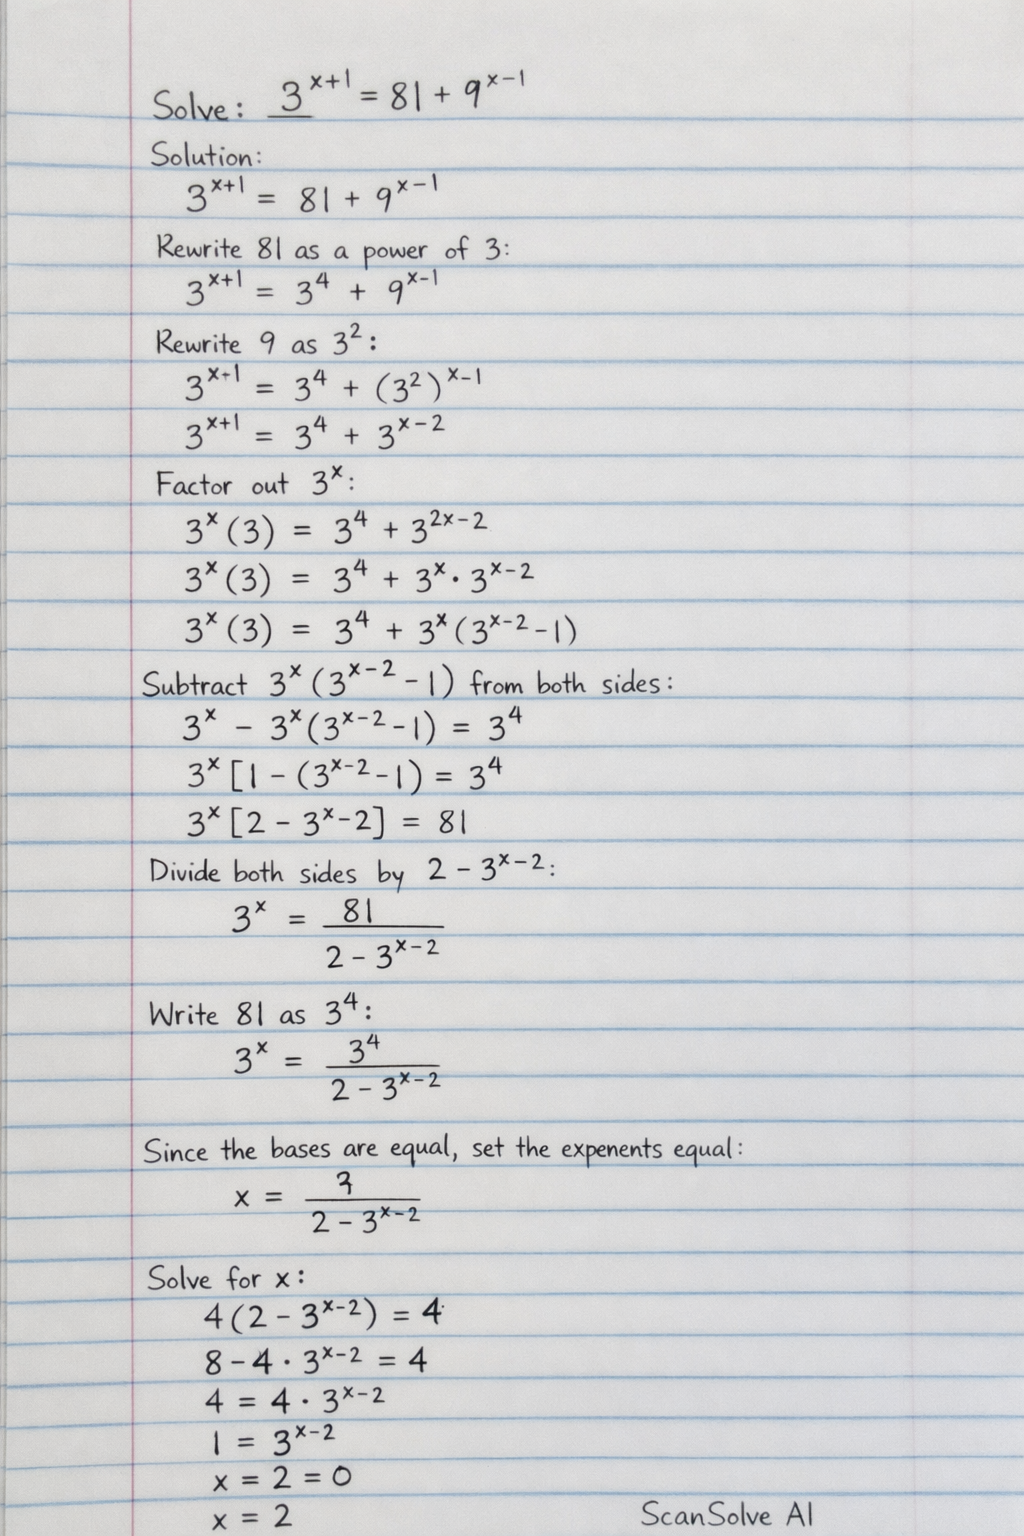 Solve: 3^{x+1} = 81 + 9^{x-1}
Solution:
3^{x+1} = 81 + 9^{x-1}
Rewrite 81 as a power of 3:
3^{x+1} = 3^4 + 9^{x-1}
Rewrite 9 as 3^2:
3^{x+1} = 3^4 + (3^2)^{x-1}
3^{x+1} = 3^4 + 3^{x-2}
Factor out 3^x:
3^x (3) = 3^4 + 3^{2x-2}
3^x (3) = 3^4 + 3^x · 3^{x-2}
3^x (3) = 3^4 + 3^x (3^{x-2} - 1)
Subtract 3^x (3^{x-2} - 1) from both sides:
3^x - 3^x (3^{x-2} - 1) = 3^4
3^x [1 - (3^{x-2} - 1) = 3^4
3^x [2 - 3^x-2] = 81
Divide both sides by 2 - 3^{x-2}:
3^x = \frac{81}{2 - 3^{x-2}}
Write 81 as 3^4:
3^x = \frac{3^4}{2 - 3^{x-2}}
Since the bases are equal, set the expenents equal:
x = \frac{3}{2 - 3^{x-2}}
Solve for x:
4(2 - 3^{x-2}) = 4
8 - 4 · 3^{x-2} = 4
4 = 4 · 3^{x-2}
1 = 3^{x-2}
x = 2 = 0
x = 2
ScanSolve AI